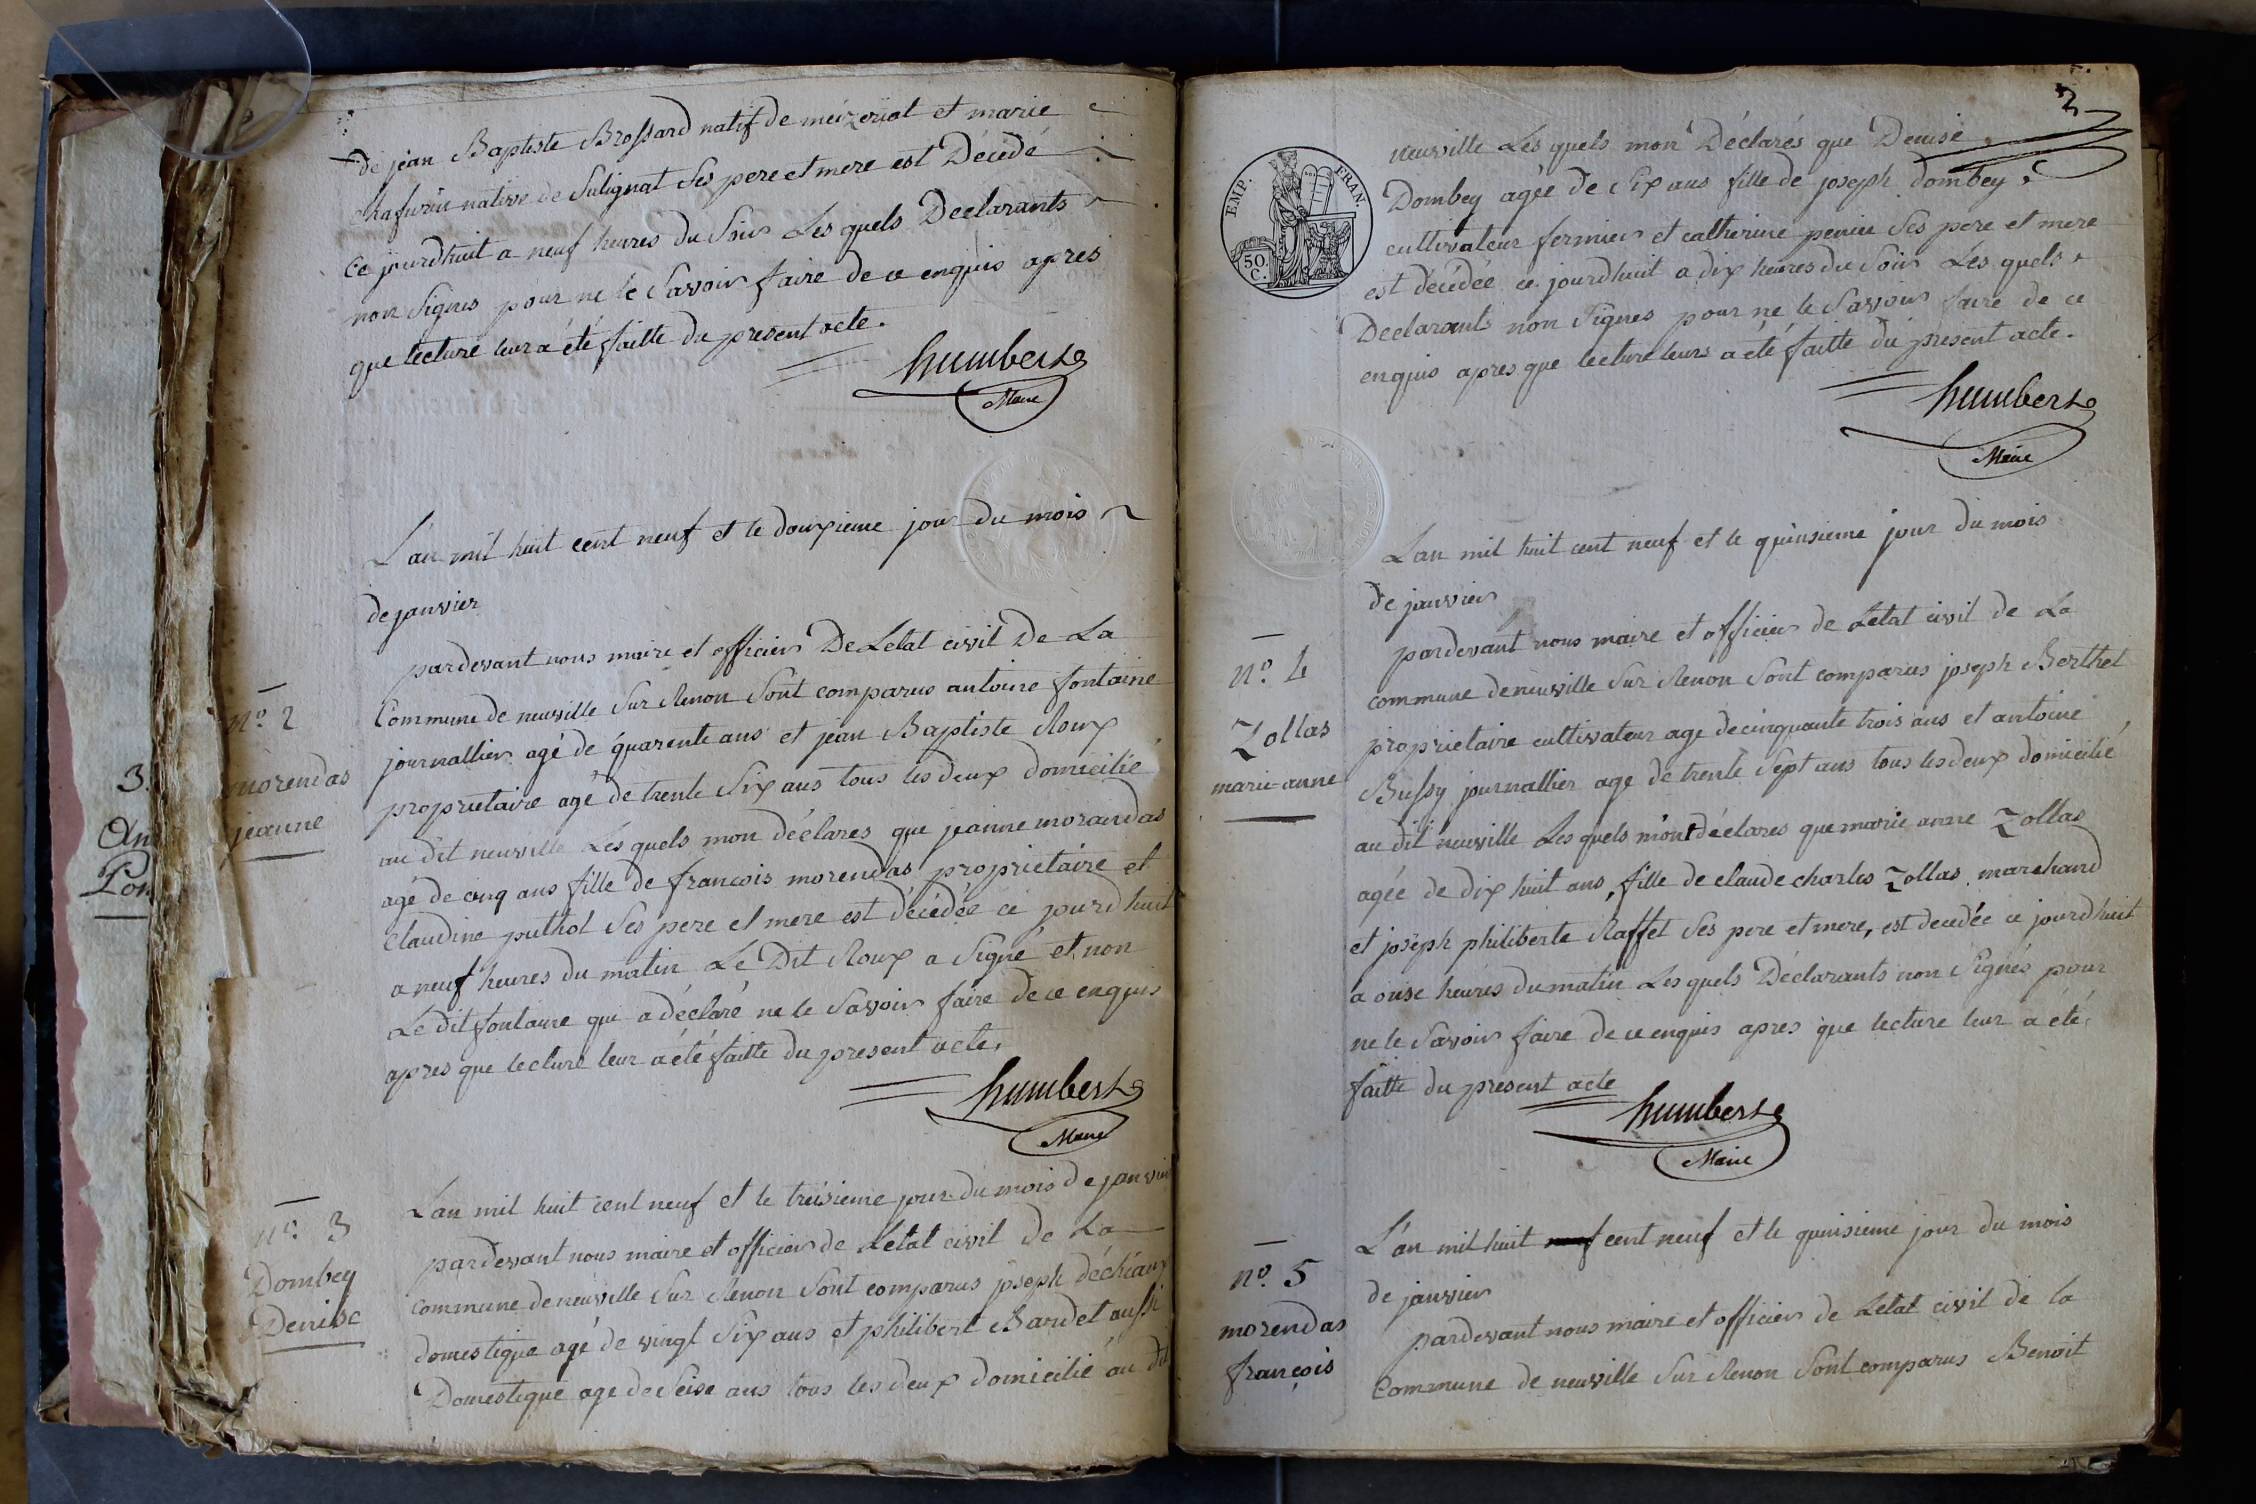 de jean Baptiste Brossard natif de meizeriat et marie
chafurin native de Sulignat Ses pere et mere est Décedé
ce jourdhuit a neuf heures du Soir Les quels Declarants
non Signes pour ne le Savoir faire de ce enquis apres
que lecture leur a été faitte du present acte.
humbert
Maire
L'an mil huit cent neuf et le douxieme jour du mois
de janvier
pardevant nous maire et officier De Letat civil De La
Commune de neuville Sur Renon Sont comparus antoine fontaine
journallier agé de quarente ans et jean Baptiste Roux
proprietaire agé de trente Six ans tous les deux domicilié
au dit neuville Les quels mon déclares que jeanne morandas
agé de cinq ans fille de francois morendas proprietaire et
Claudine puthot Ses pere et mere est décédée ce jourdhuit
a neuf heures du matin Le Dit Roux a Signé et non
Le dit fontaine qui a déclaré ne le Savoir faire de ce enquis
apres que lecture leur a été faitte du present acte.
humbert
Maire
nº 2
morendas
jeanne
L'an mil huit cent neuf et le treisieme jour du mois de janvier
pardevant nous maire et officier de Letat civil de La
commune de neuville Sur Renon Sont comparus joseph déchéaux
domestique agé de vingt Six ans et philibert Bardet aussi
Domestique age de Seise ans tous les deux domicilié au dit
nº 3
Dombey
Denise
3.
An
Pon
2
neuville Les quels mon Déclarés que Denise
Dombey agée de Six ans fille de joseph dombey
cultivateur fermier et catherine perier Ses pere et mere
est décédée ce jourdhuit a dix heures du Soir Les quels
Declarants non Signes pour ne le Savoir faire de ce
enquis apres que lecture leurs a été faitte du present acte.
humbert
Maire
EMP. FRAN.
50.
C.
L'an mil huit cent neuf et le quinsieme jour du mois
de janvier
pardevant nous maire et officier de Letat civil de La
commune de neuville Sur Renon Sont comparus joseph Berthet
proprietaire cultivateur age de cinquante trois ans et antoine
Bussy journallier age de trente Sept ans tous les deux domicilié
au dit neuville Les quels m'ont déclares que marie anne Zollas
agée de dix huit ans, fille de claude charles Zollas marchand
et joseph philiberte Raffet Ses pere et mere, est decedée ce jourdhuit
a onse heures du matin Les quels Déclarants non Signés pour
ne le Savoir faire de ce enquis apres que lecture leur a été
faitte du present acte
humbert
Maire
nº 4
Zollas
marie anne
L'an mil huit neuf cent neuf et le quinsieme jour du mois
de janvier
pardevant nous maire et officier de Letat civil de la
Commune de neuville Sur Renon Sont comparus Benoit
nº 5
morendas
françois